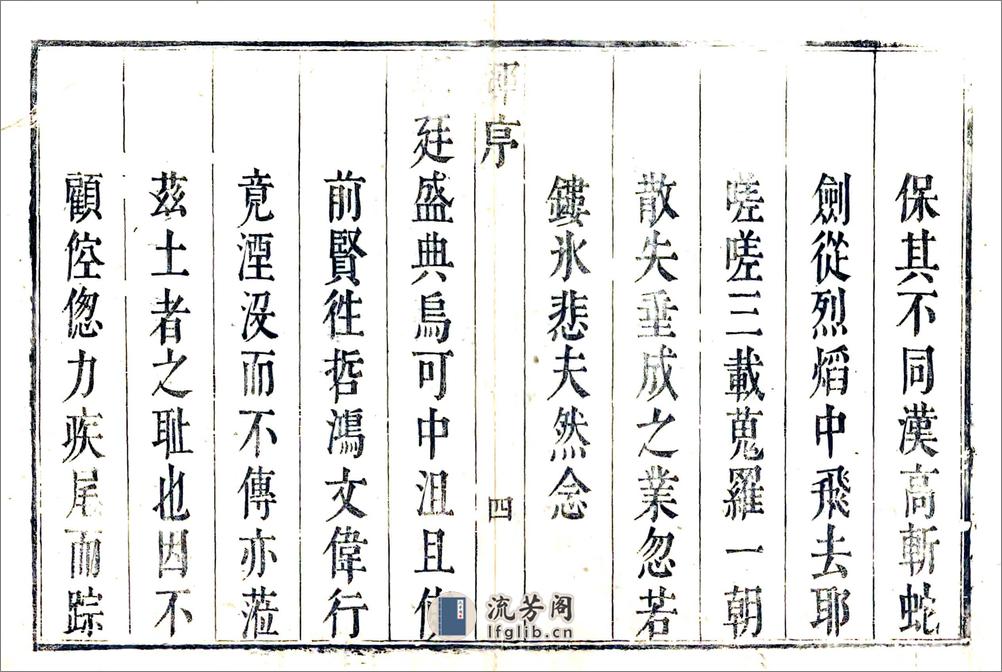 保其不同漢高斬蛇
劍從烈熖中飛去耶
嗟嗟三載蒐羅一朝
散失垂成之業忽若
鏤氷悲夫然念
序
四
廷盛典烏可中沮且使
前賢徃哲鴻文偉行
竟湮沒而不傳亦蒞
茲土者之耻也因不
顧倥偬力疾尾而踪
流芳阁
lfglib.cn